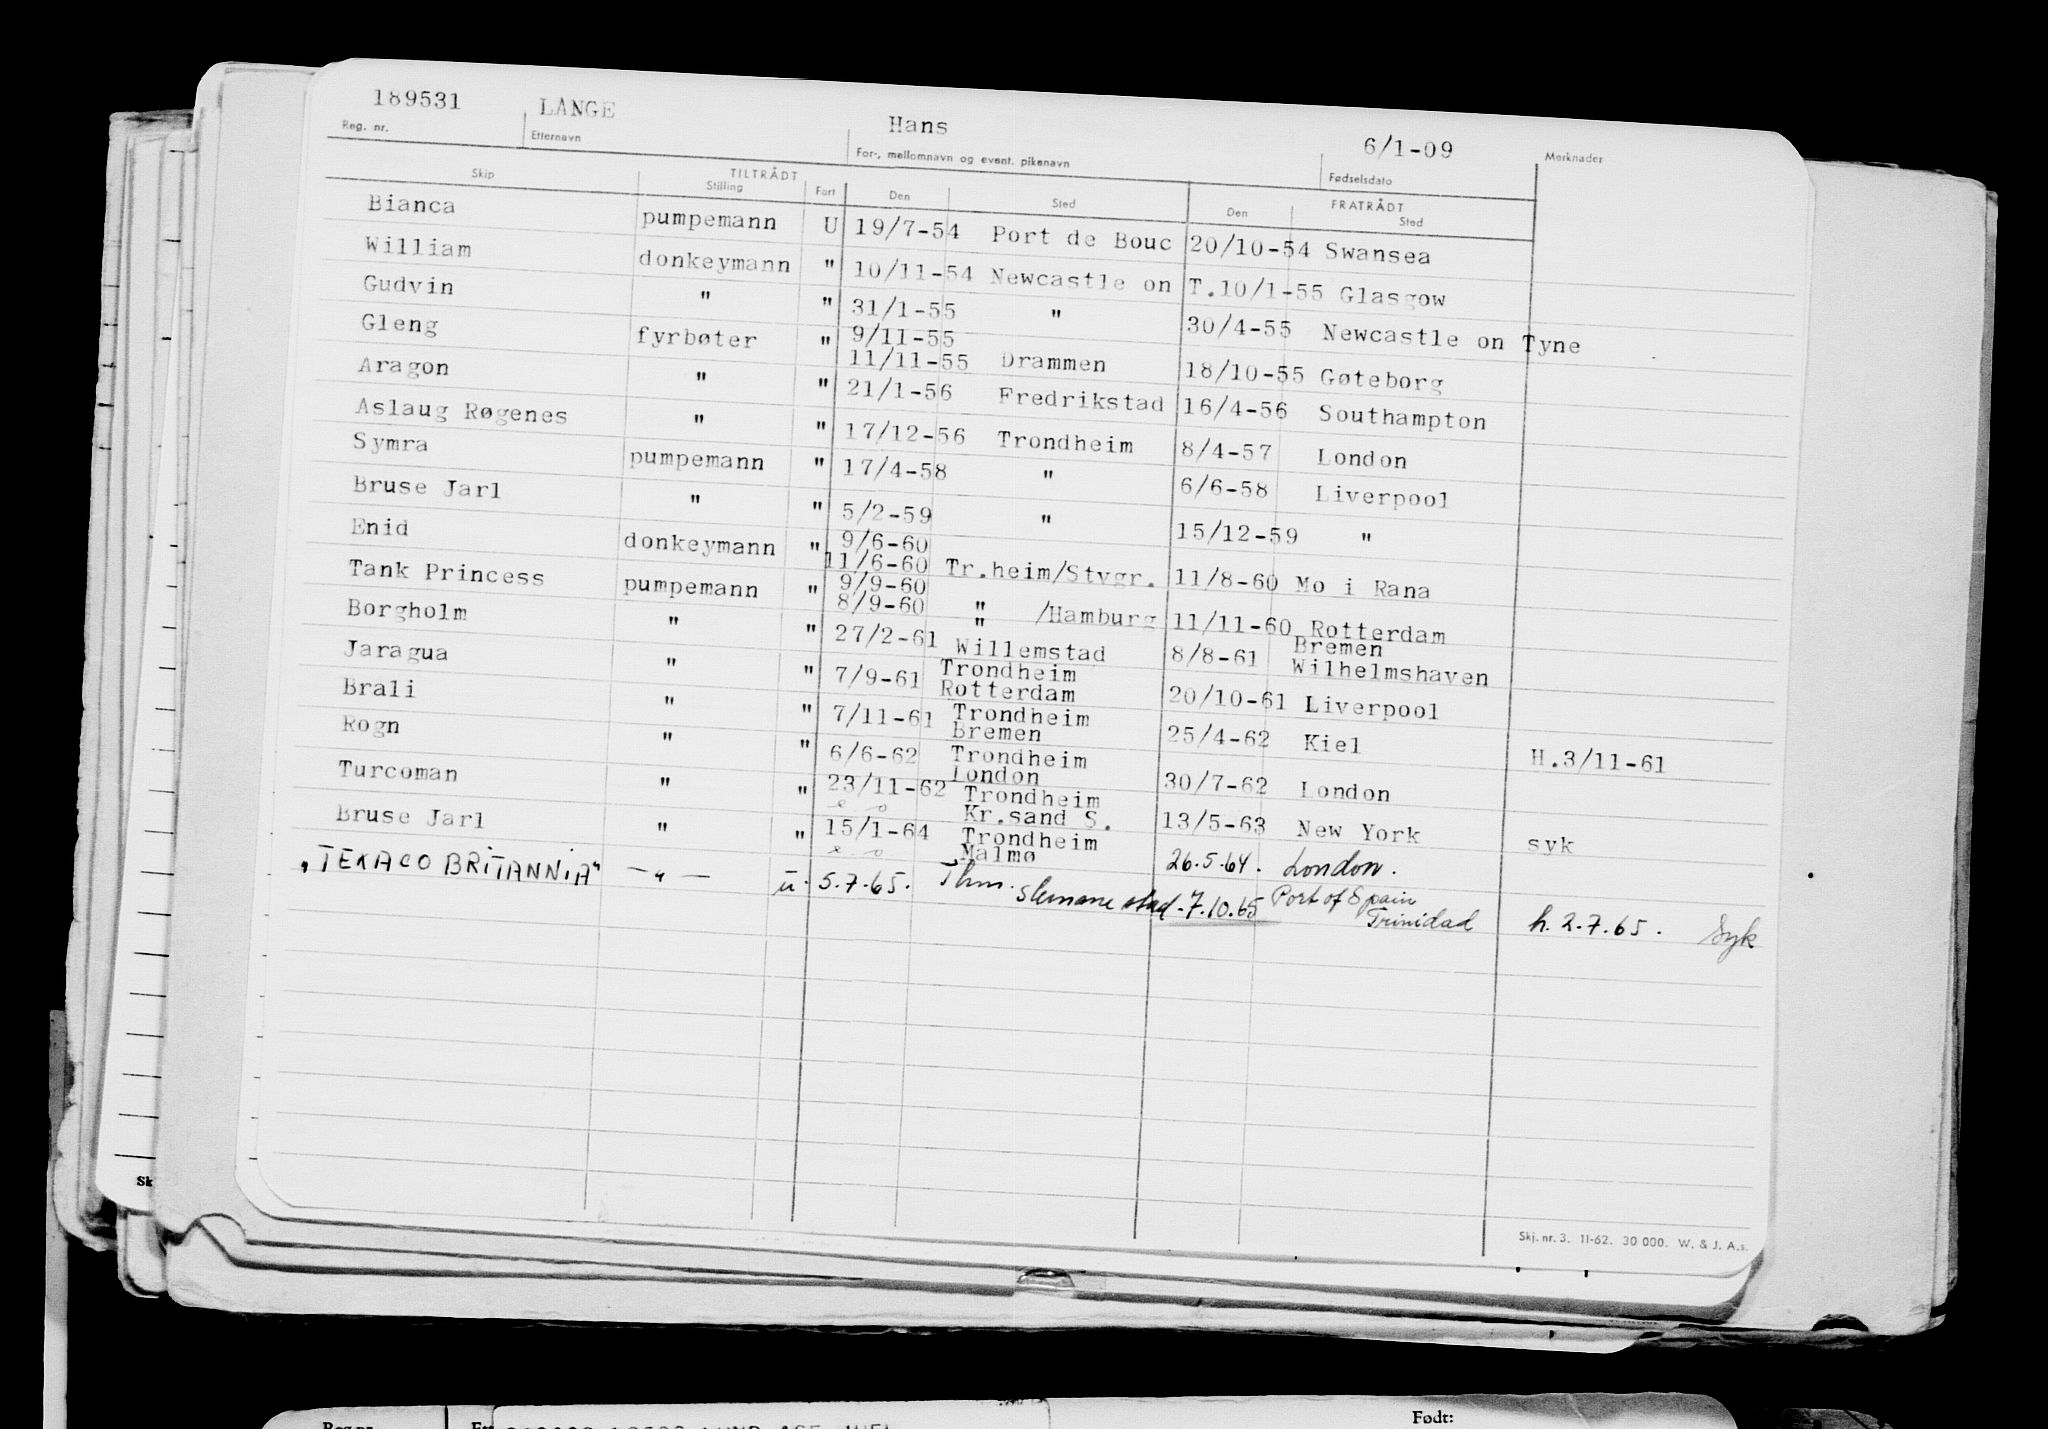 189531 LANGE Hans 6/1-09
Reg. nr. Etternavn For-, mellomnavn og event. pikenavn Fødselsdato Merknader
TILTRÅDT FRATRÅDT
Skip Stilling Fart Den Sted Den Sted
Bianca pumpemann U 19/7-54 Port de Bouc 20/10-54 Swansea
William donkeymann " 10/11-54 Newcastle on T. 10/1-55 Glasgow
Gudvin " " 31/1-55 " 30/4-55 Newcastle on Tyne
Gleng fyrbøter " 9/11-55
11/11-55 Drammen 18/10-55 Gøteborg
Aragon " " 21/1-56 Fredrikstad 16/4-56 Southampton
Aslaug Røgenes " " 17/12-56 Trondheim 8/4-57 London
Symra pumpemann " 17/4-58 " 6/6-58 Liverpool
Bruse Jarl " " 5/2-59 " 15/12-59 "
Enid donkeymann " 9/6-60
11/6-60 Tr.heim/Stvgr. 11/8-60 Mo i Rana
Tank Princess pumpemann " 9/9-60
8/9-60 " /Hamburg 11/11-60 Rotterdam
Borgholm " " 27/2-61 "
Willemstad 8/8-61 Bremen
Wilhelmshaven
Jaragua " " 7/9-61 Trondheim
Rotterdam 20/10-61 Liverpool
Brali " " 7/11-61 Trondheim
Bremen 25/4-62 Kiel H.3/11-61
Rogn " " 6/6-62 Trondheim
London 30/7-62 London
Turcoman " " 23/11-62 Trondheim
Kr.sand S. 13/5-63 New York syk
Bruse Jarl " " 15/1-64 Trondheim
Malmø 26.5.64. London.
"TEXACO BRITANNIA" — " — u. 5.7.65. Thm. 7.10.65 Port of Spain
Trinidad h. 2.7.65. Syk
Skj. nr. 3. 11-62. 30 000. W. & J. A.s.
Sk
Reg.nr. Født: